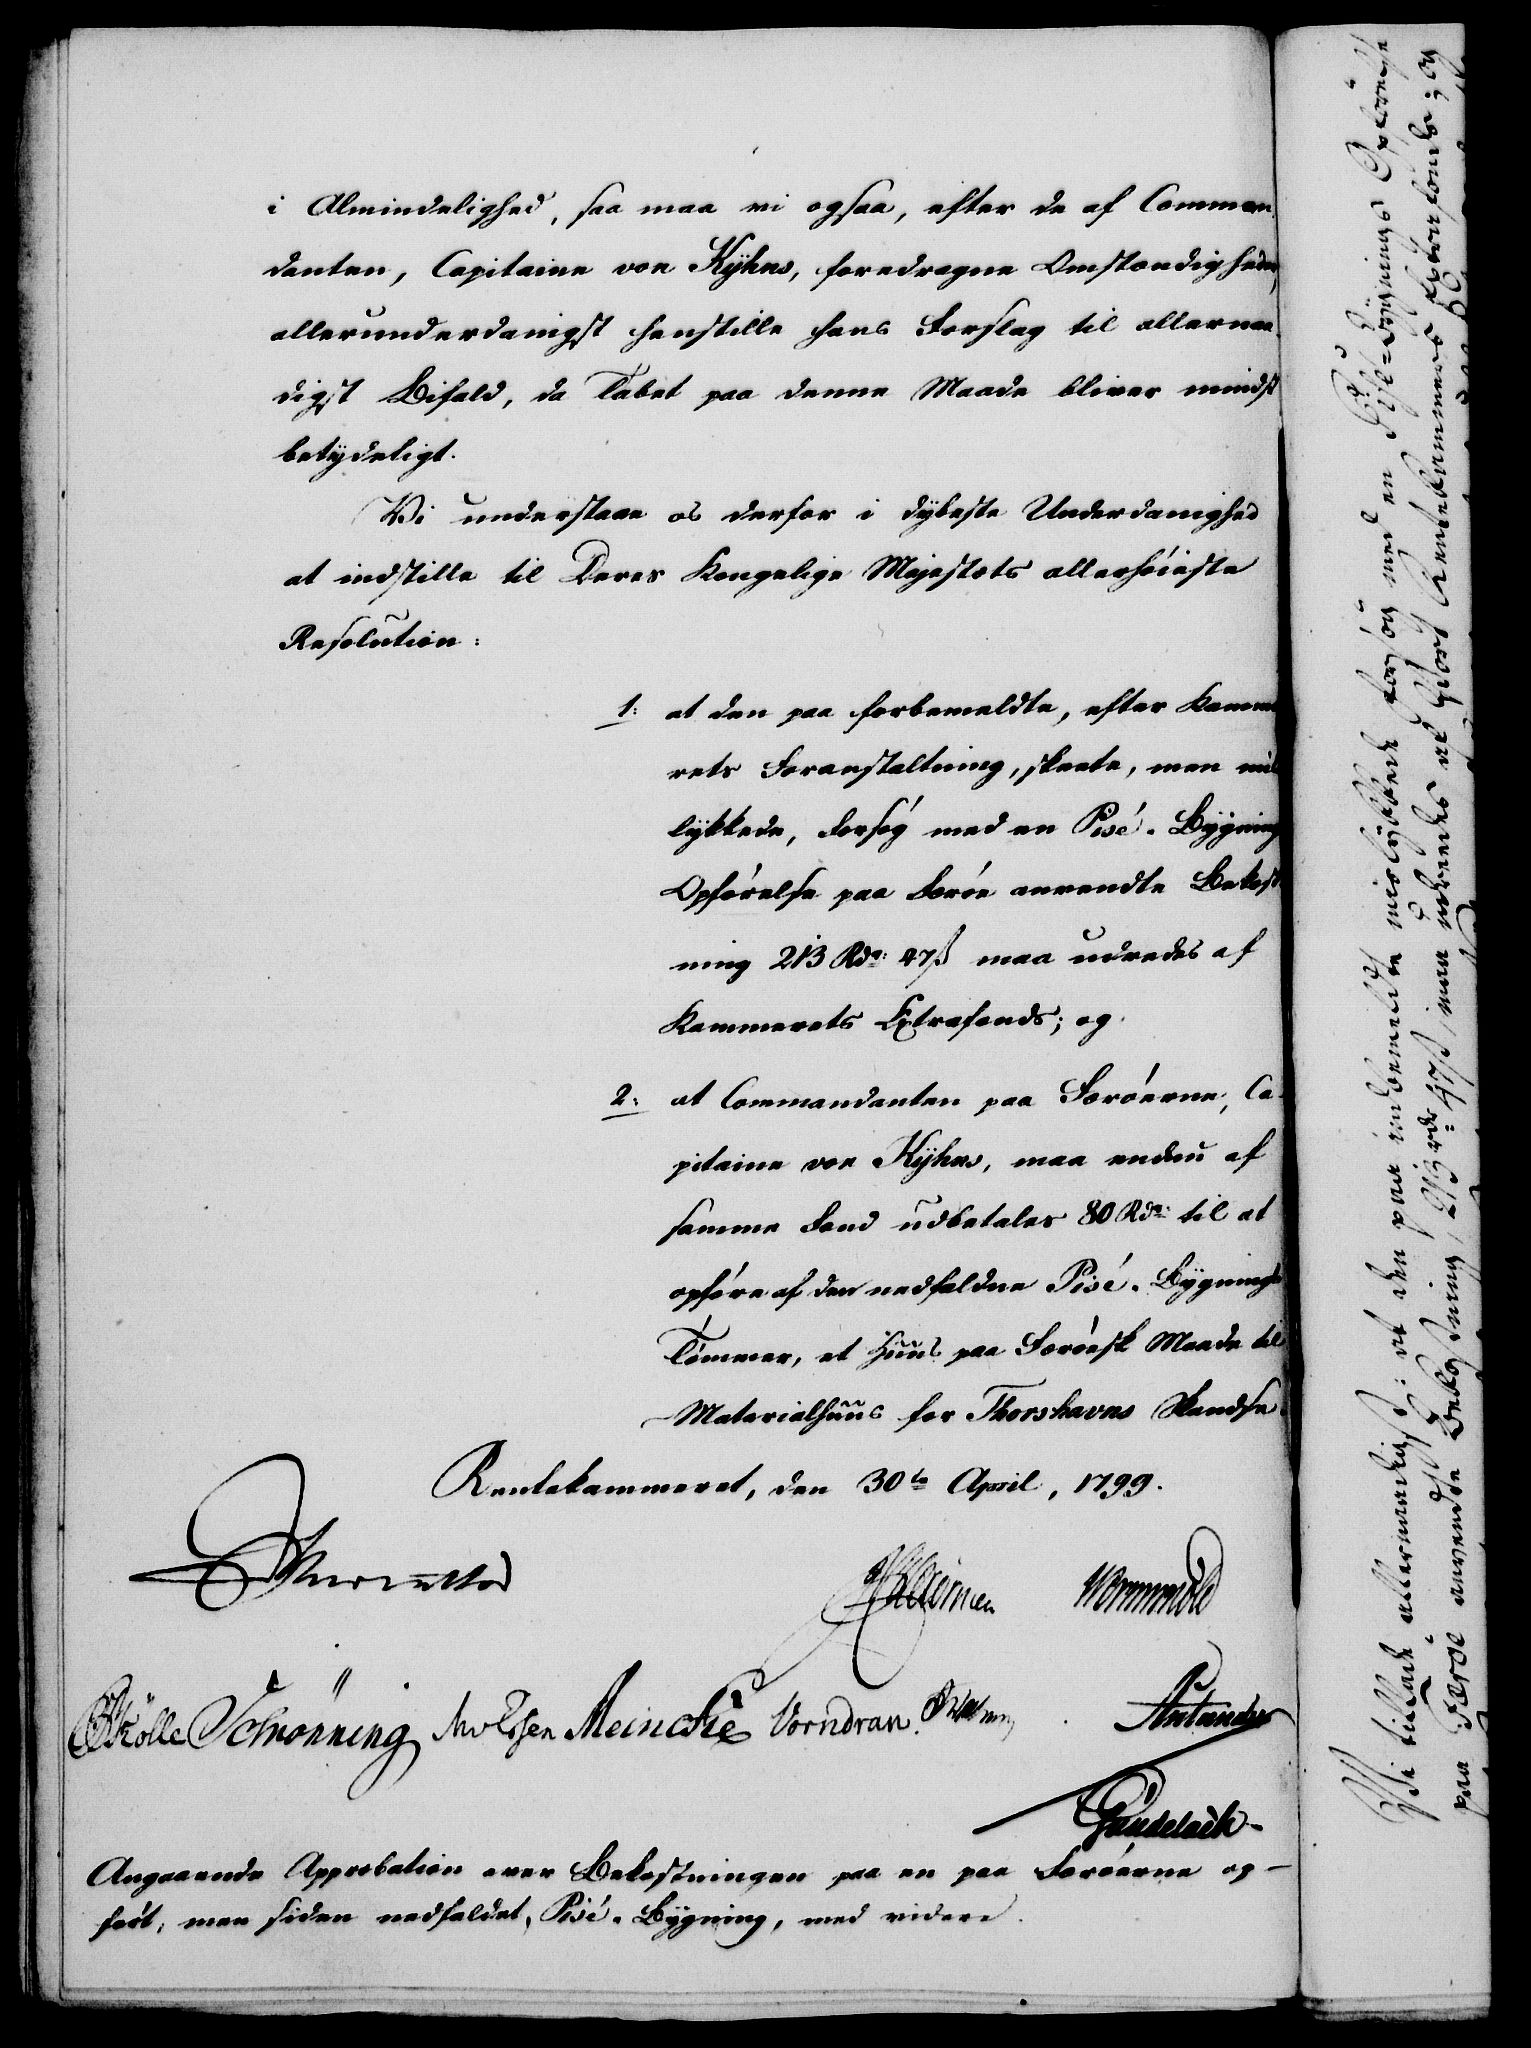 i Almindelighed, saa maa vi ogsaa, efter de af Comman
danten, Capitaine von Kÿhns, foredragne Omstændigheder,
allerunderdanigst henstille hans Forslag til allernaa
digst Bifald, da Tabet paa denne Maade bliver mindst
betÿdeligt.
Vi understaae os derfor i dÿbeste Underdanighed
at indstille til Deres Kongelige Majestæts allerhöieste
Resolution:
1: at den paa forbemeldte, efter Kamme
rets Foranstaltning, skeete, men mis
lÿkkede, Forsög med en Pisé-Bÿgnings
Opförelse paa Færöe anvendte Bekost
ning 213 Rdr. 47 ß maa udredes af
Kammerets Extrafonds; og
2: at Commandanten paa Færöerne, Ca-
pitaine von Kÿhns, maa endnu af
samme Fond udbetales 80 Rdr. til at
opföre af den nedfaldne Pisé-Bÿgnings
Tömmer, et Huus paa Færöesk Maade til
Materialhuus for Thorshavns Skandse.
Rentekammeret, den 30te April, 1799.
Wormskiold
Kölle Schrönning Meincke Vorndran
Gundelach
Angaaende Approbation over Bekostningen paa en paa Færöerne op-
fört, men siden nedfaldet, Pisé-Bÿgning, med videre.
Vi tillade allernaadigst: at den paa indbemeldte mislÿkkede Forsög med en Pisé-Bÿgnings Opförelse
paa Færöe anvendte Bekostning, 213 rdr 47 ß, maa udredes af Vort Rentekammers Extrafonds; og